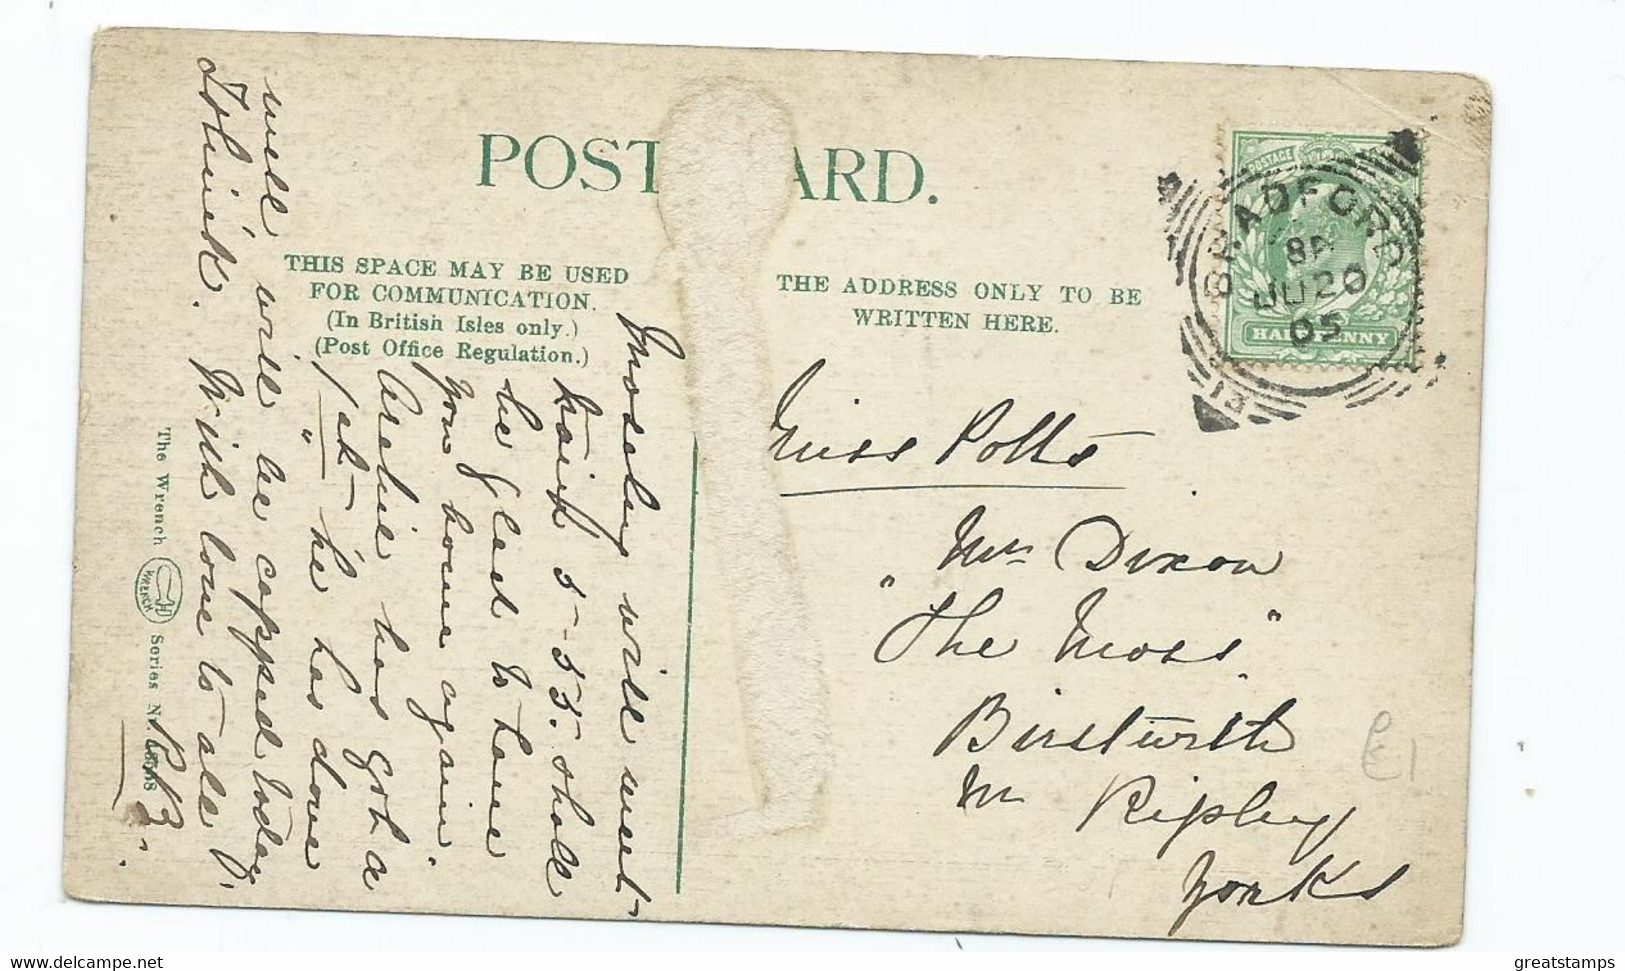 POST ARD.
THIS SPACE MAY BE USED
FOR COMMUNICATION.
(In British Isles only.)
(Post Office Regulation.)
THE ADDRESS ONLY TO BE
WRITTEN HERE.
POSTAGE
HALF PENNY
BRADFORD
JU 20
05
Moseley will meet
train 5-55. shall
be glad to have
you home again.
Archie has got a
/ set " he has done
well will be capped today
I think. With love to all
The Wrench
WRENCH
Series No.
Miss Potts
Mrs Dixon
"The Moss"
Birstwith
Nr Ripley
Yorks
E1
greatstamps